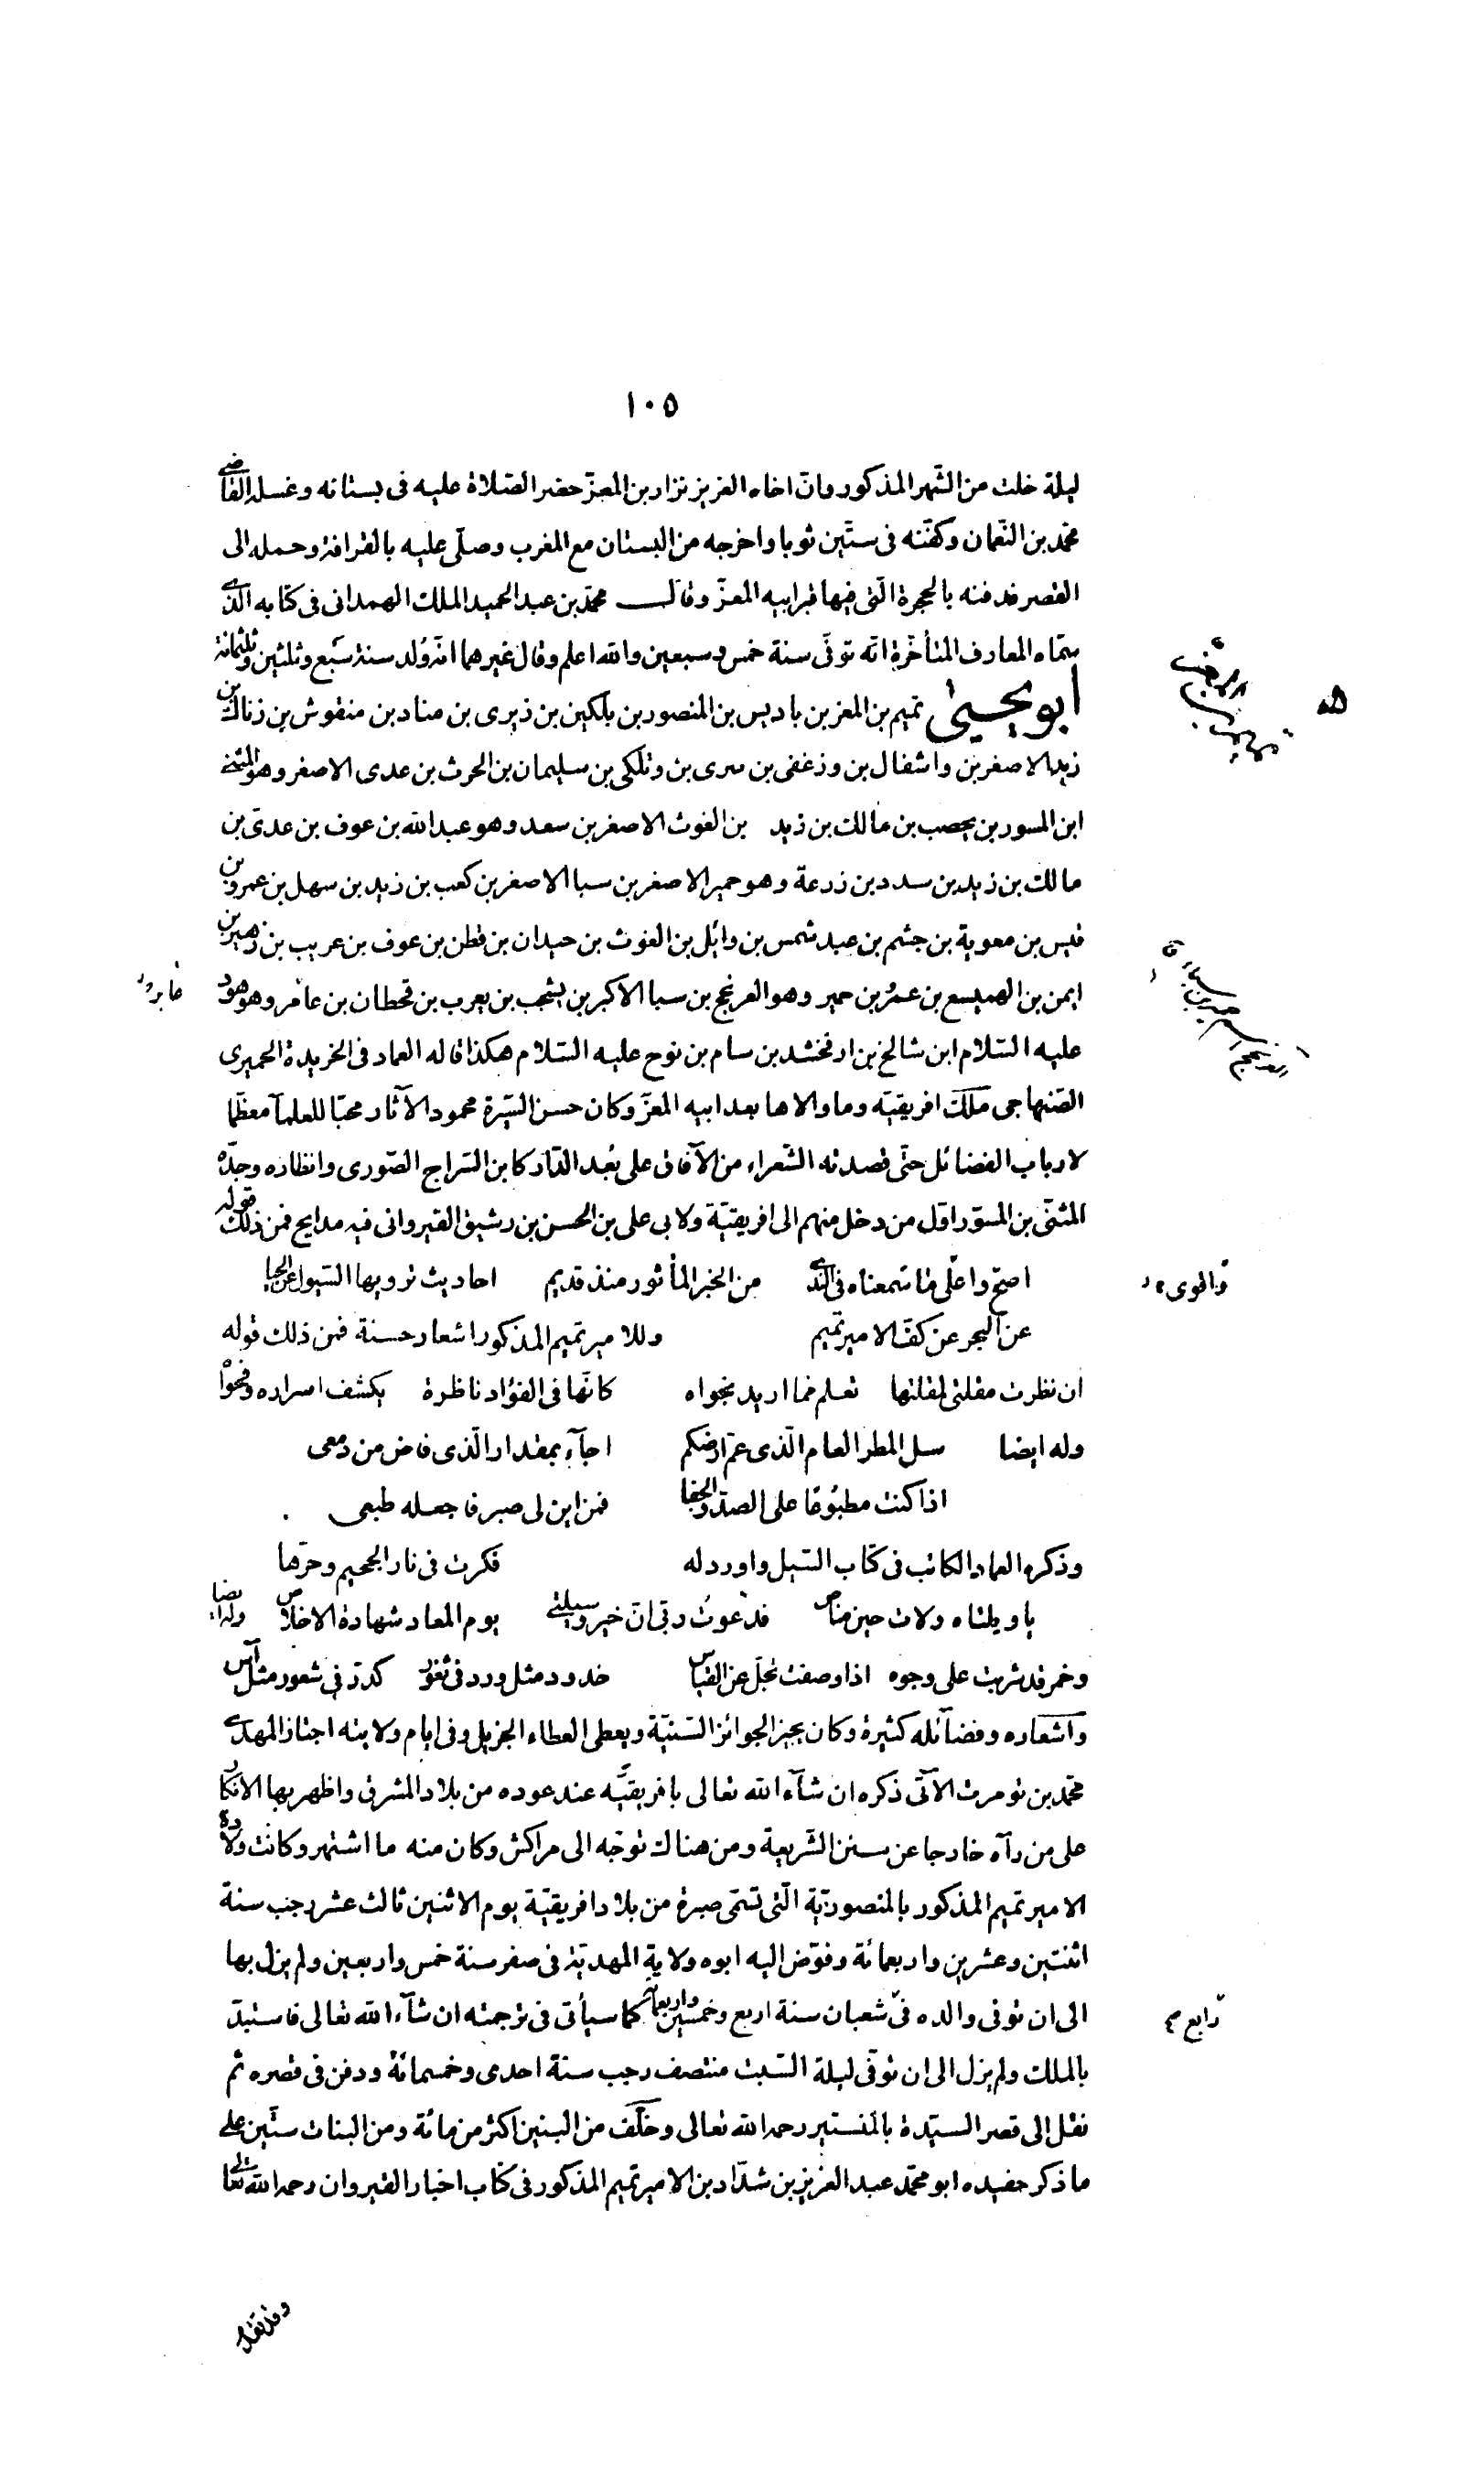 ١٠٥
ليلة خلت من الشهر المذكور وان اخاه العزيز نزار بن المعزّ حضر الصّلاة عليه فى بستانه وغسله القاضى
محمّد بن النّعمان وكفّنه فى ستّين ثوبا واخرجه من البستان مع المغرب وصلّى عليه بالقرافة وحمله الى
القصر فدفنه بالحجرة الّتى فيها قبر ابيه المعزّ وقال محمّد بن عبد الحميد الملك الهمدانى فى كتابه الّذى
سمّاه المعارف المتأخّرة انّه توفّى سنة خمس وسبعين والله اعلم وقال غيرهما انّه وُلد سنة سَبع وثلثين وثلثمائة
أبو يحيىٰ تميم بن المعز بن باديس بن المنصور بن بلكين بن زيرى بن مناد بن منقوش بن زناك بن
زيد الاصغر بن واشفال بن وزغفى بن سرى بن وتلكى بن سليمان بن الحرث بن عدى الاصغر وهو المثنى
ابن المسور بن يحصب بن مالك بن زيد بن الغوث الاصغر بن سعد وهو عبد الله بن عوف بن عدىّ بن
مالك بن زيد بن سدد بن زرعة وهو حمير الاصغر بن سبا الاصغر بن كعب بن زيد بن سهل بن عمرو بن
قيس بن معوية بن جشم بن عبد شمس بن وائل بن الغوث بن حيدان بن قطن بن عوف بن عريب بن زهير بن
ايمن بن الهميسع بن عمرُ بن حمير وهو العرنجج بن سبا الاكبر بن يشجب بن يعرب بن قحطان بن عامر وهو هود
عليه السّلام ابن شالخ بن ارفخشد بن سام بن نوح عليه السّلام هكذا قاله العماد فى الخريدة الحميرى
الصّنهاجى ملك افريقيّة وما والاها بعد ابيه المعزّ وكان حسن السّيرة محمود الآثار محبّا للعلمآ معظّما
لارباب الفضائل حتّى قصدته الشّعراء من الآفاق على بُعد الدّار كابن السّراج الصّورى وانظاره وجدّه
المثنّى بن المسوّر اوّل من دخل منهم الى افريقيّة ولابى على بن الحسن بن رشيق القيروانى فيه مدايح فمن ذلك قوله
اصحّ واعلى ما سمعناه فى النّدى من الخبر المأثور منذ قديم احاديث ترويها السّيول عن الحيا
واقوى
عن البحر عن كفّ الامير تميم وللامير تميم المذكور اشعار حسنة فمن ذلك قوله
ان نظرت مقلتى لمقلتها تعلم مما اريد نجواه كانّها فى الفؤاد ناظرة يكشف اسراره وفحواه
وله ايضا سل المطر العام الّذى عمّ ارضكم اجآء بمقدار الّذى فاض من دمعى
اذا كنت مطبُوعًا على الصدّ والجفا فمن اين لى صبر فاجعله طبعى
وذكره العماد الكاتب فى كتاب السّيل واورد له فكرت فى نار الجحيم وحرّها
ياويلتاه ولات حين مناص فدعوت ربّى انّ خير وسيلتى يوم المعاد شهادة الاخلاص وله ايضا
وخمر قد شربت على وجوه اذا وصفت تجلّ عن القياس خدود مثل ورد فى ثغور كدرّ فى شعور مثل آس
واشعاره وفضآئله كثيرة وكان يجيز الجوائز السّنيّة ويعطى العطاء الجزيل وفى ايام ولايته اجتاز المهدى
محمّد بن تومرت الآتى ذكره ان شآء الله تعالى بافريقيّه عند عوده من بلاد المشرق واظهر بها الانكار
على من رآه خارجا عن سنن الشّريعة ومن هناك توجّه الى مراكش وكان منه ما اشتهر وكانت ولادة
الامير تميم المذكور بالمنصوريّة الّتى تسمّى صبرة من بلاد افريقيّة يوم الاثنين ثالث عشر رجب سنة
اثنتين وعشرين واربعمائة وفوّض اليه ابوه ولاية المهديّة فى صفر سنة خمس واربعين ولم يزل بها
الى ان توفى والده فى شعبان سنة اربع وخمسين واربعمائة كما سيأتى فى ترجمته ان شآء الله تعالى فاستبدّ
رابع
بالملك ولم يزل الى ان توفّى ليلة السّبت منتصف رجب سنة احدى وخمسمائة ودفن فى قصره ثم
نقل الى قصر السيّدة بالمنستير رحمه الله تعالى وخلّف من البنين اكثر من مائة ومن البنات ستّين على
ما ذكر حفيده ابو محمّد عبد العزيز بن شدّاد بن الامير تميم المذكور فى كتاب اخبار القيروان رحمه الله تعالى
وقد تقدّم